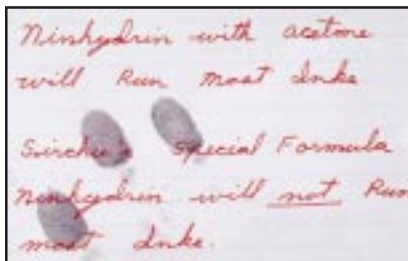 Ninhydrin with acetone
will Run most Inks
Sirchie Special Formula
Ninhydrin will not Run
most Inks.